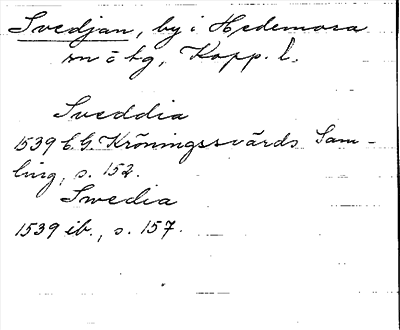 Svedjan, by i Hedemora
sn o tg, Kopp. l.
Sveddia
1539 C. G. Kröningssvärds Sam-
ling, s. 152.
Swedia
1539 ib., s. 157.